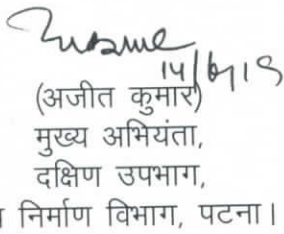 14/6/19
(अजीत कुमार)
मुख्य अभियंता,
दक्षिण उपभाग,
निर्माण विभाग, पटना।